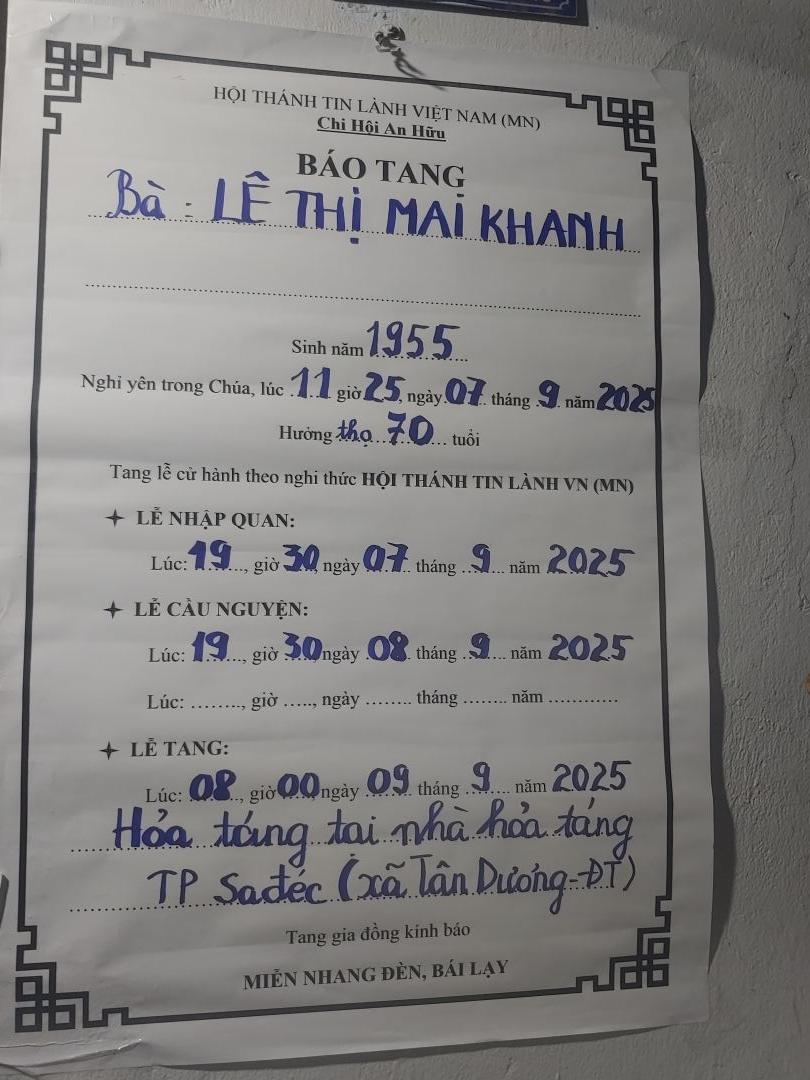 HỘI THÁNH TIN LÀNH VIỆT NAM (MN)
Chi Hội An Hữu
BÁO TANG
Bà : LÊ THỊ MAI KHANH
Sinh năm 1955
Nghỉ yên trong Chúa, lúc 11 giờ 25, ngày 07 tháng 9 năm 2025
Hưởng thọ 70 tuổi
Tang lễ cử hành theo nghi thức HỘI THÁNH TIN LÀNH VN (MN)
LỄ NHẬP QUAN:
Lúc: 19, giờ 30, ngày 07 tháng 9 năm 2025
LỄ CẦU NGUYỆN:
Lúc: 19, giờ 30 ngày 08 tháng 9 năm 2025
Lúc: ........, giờ ....., ngày ........ tháng ........ năm ............
LỄ TANG:
Lúc: 08, giờ 00, ngày 09 tháng 9 năm 2025
Hỏa táng tại nhà hỏa táng
TP Sađéc (xã Tân Dương-ĐT)
Tang gia đồng kính báo
MIỄN NHANG ĐÈN, BÁI LẠY